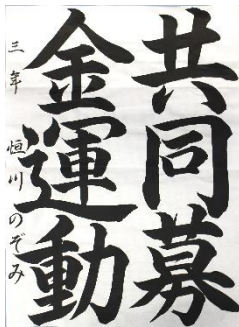 共同募
金運動
三年 恒川のぞみ